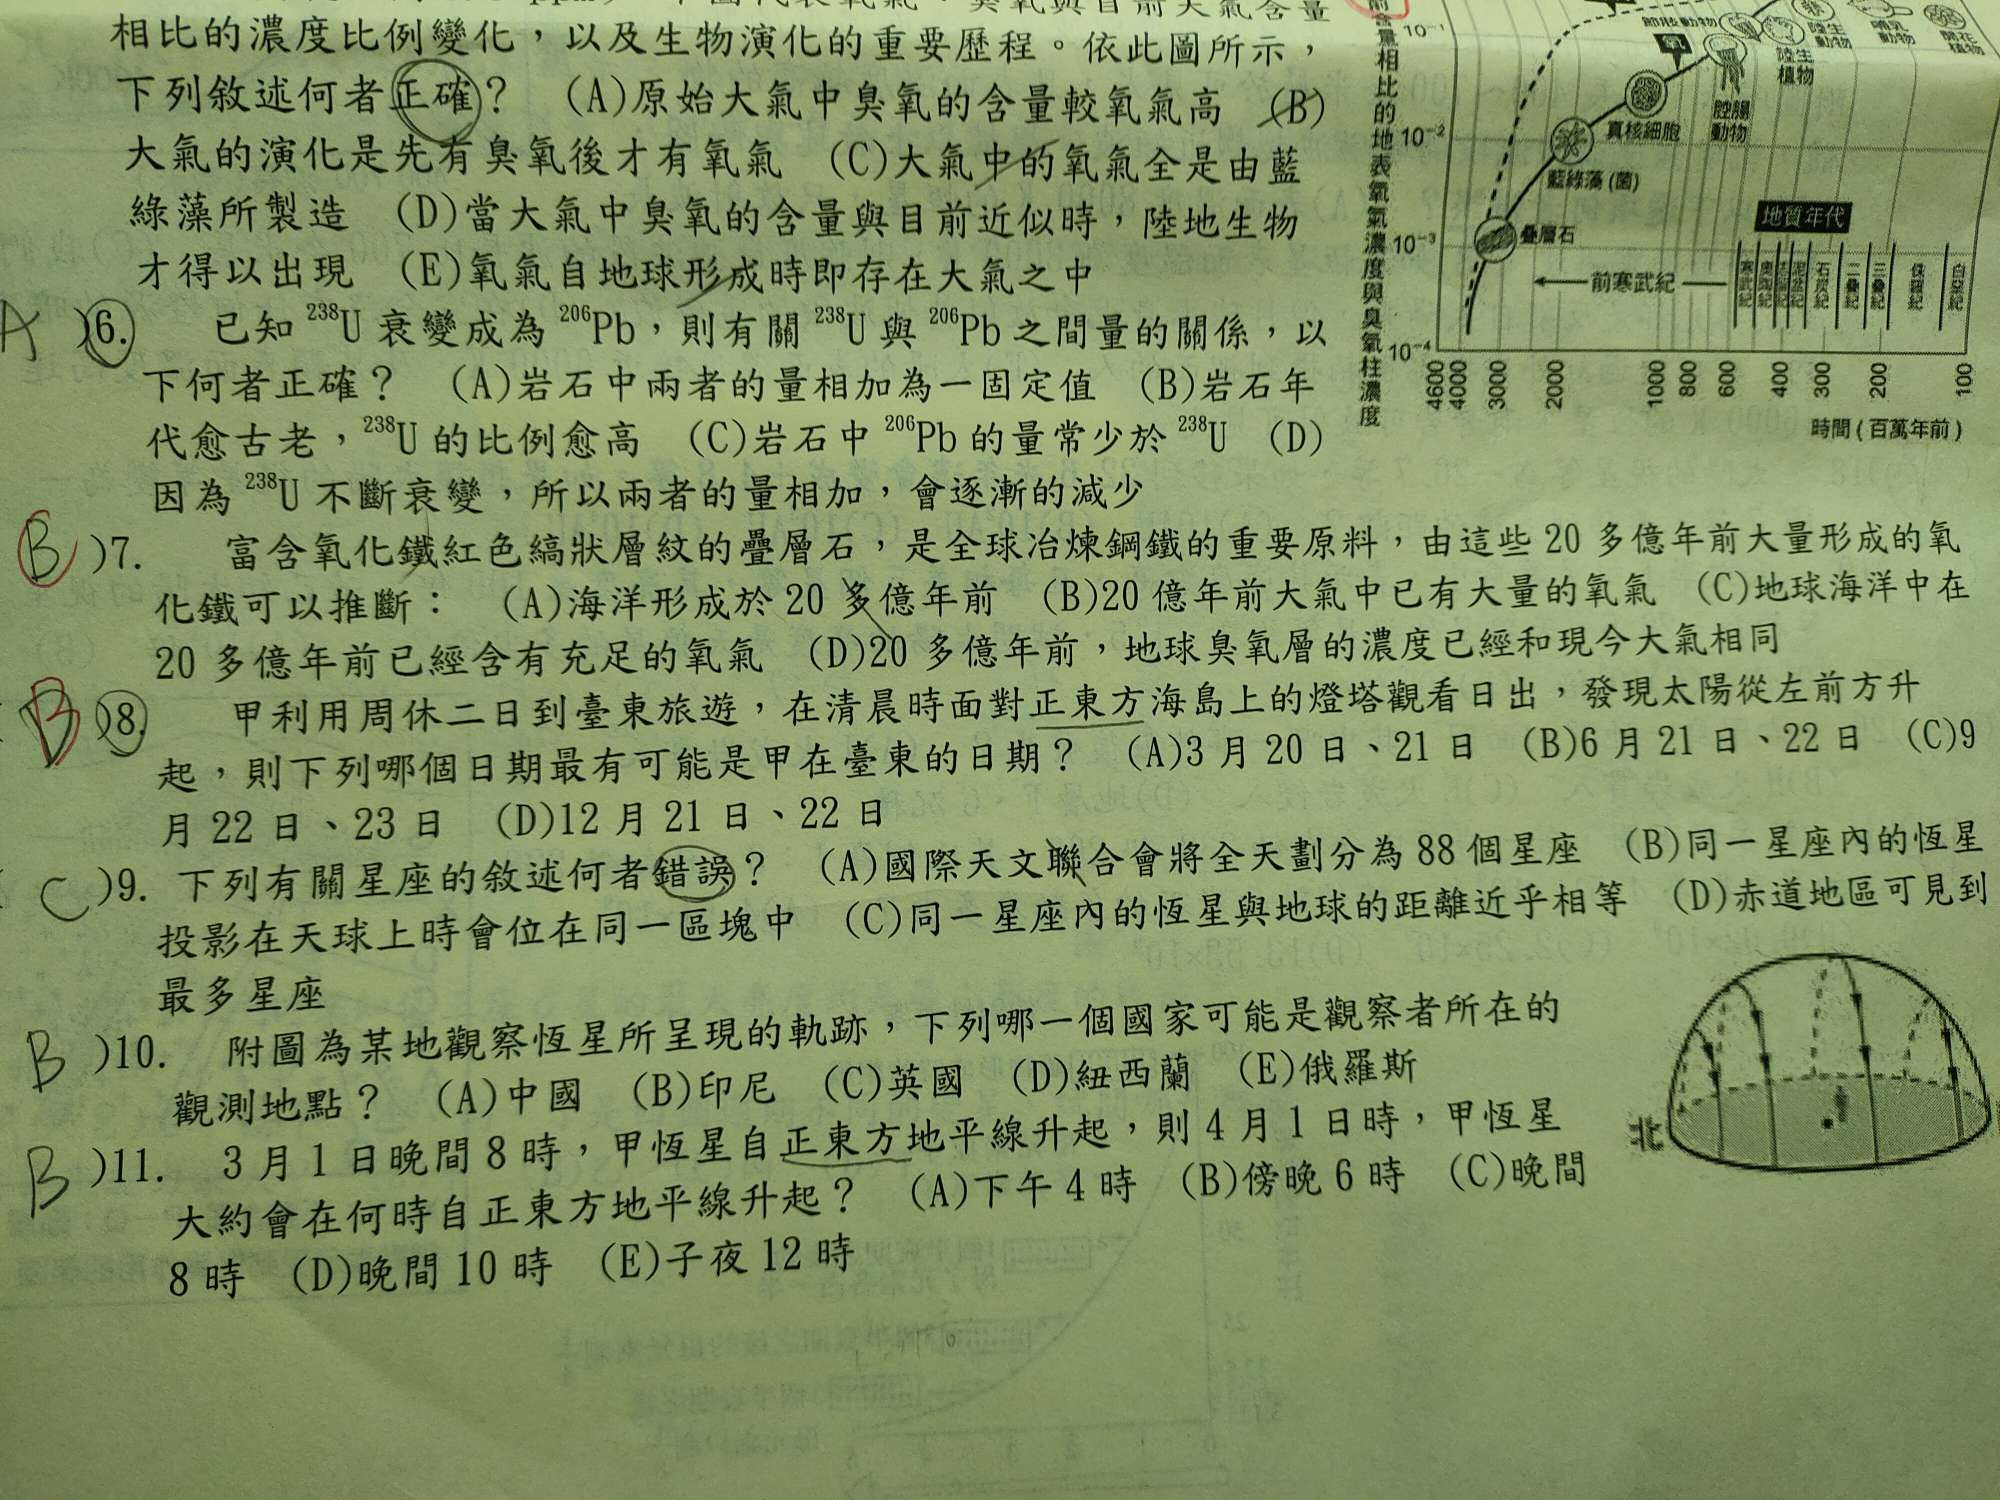 相比的濃度比例變化，以及生物演化的重要歷程。依此圖所示，
下列敘述何者正確？　(A)原始大氣中臭氧的含量較氧氣高　(B)
大氣的演化是先有臭氧後才有氧氣　(C)大氣中的氧氣全是由藍
綠藻所製造　(D)當大氣中臭氧的含量與目前近似時，陸地生物
才得以出現　(E)氧氣自地球形成時即存在大氣之中
A )6.　已知 ²³⁸U 衰變成為 ²⁰⁶Pb，則有關 ²³⁸U 與 ²⁰⁶Pb 之間量的關係，以
下何者正確？　(A)岩石中兩者的量相加為一固定值　(B)岩石年
代愈古老，²³⁸U 的比例愈高　(C)岩石中 ²⁰⁶Pb 的量常少於 ²³⁸U　(D)
因為 ²³⁸U 不斷衰變，所以兩者的量相加，會逐漸的減少
B )7.　富含氧化鐵紅色縞狀層紋的疊層石，是全球冶煉鋼鐵的重要原料，由這些 20 多億年前大量形成的氧
化鐵可以推斷：　(A)海洋形成於 20 多億年前　(B)20 億年前大氣中已有大量的氧氣　(C)地球海洋中在
20 多億年前已經含有充足的氧氣　(D)20 多億年前，地球臭氧層的濃度已經和現今大氣相同
B )8.　甲利用周休二日到臺東旅遊，在清晨時面對正東方海島上的燈塔觀看日出，發現太陽從左前方升
起，則下列哪個日期最有可能是甲在臺東的日期？　(A)3 月 20 日、21 日　(B)6 月 21 日、22 日　(C)9
月 22 日、23 日　(D)12 月 21 日、22 日
C )9. 下列有關星座的敘述何者錯誤？　(A)國際天文聯合會將全天劃分為 88 個星座　(B)同一星座內的恆星
投影在天球上時會位在同一區塊中　(C)同一星座內的恆星與地球的距離近乎相等　(D)赤道地區可見到
最多星座
B )10.　附圖為某地觀察恆星所呈現的軌跡，下列哪一個國家可能是觀察者所在的
觀測地點？　(A)中國　(B)印尼　(C)英國　(D)紐西蘭　(E)俄羅斯
B )11.　3 月 1 日晚間 8 時，甲恆星自正東方地平線升起，則 4 月 1 日時，甲恆星
大約會在何時自正東方地平線升起？　(A)下午 4 時　(B)傍晚 6 時　(C)晚間
8 時　(D)晚間 10 時　(E)子夜 12 時
前含量相比的地表氧氣濃度與臭氧柱濃度
10⁻¹
10⁻²
10⁻³
10⁻⁴
氧
陸生動物
哺乳動物
開花植物
陸生植物
腔腸動物
真核細胞
藍綠藻(菌)
疊層石
地質年代
前寒武紀
寒武紀
奧陶紀
志留紀
泥盆紀
石炭紀
二疊紀
三疊紀
侏羅紀
白堊紀
4600 4000 3000 2000 1000 800 600 400 300 200 100
時間(百萬年前)
北